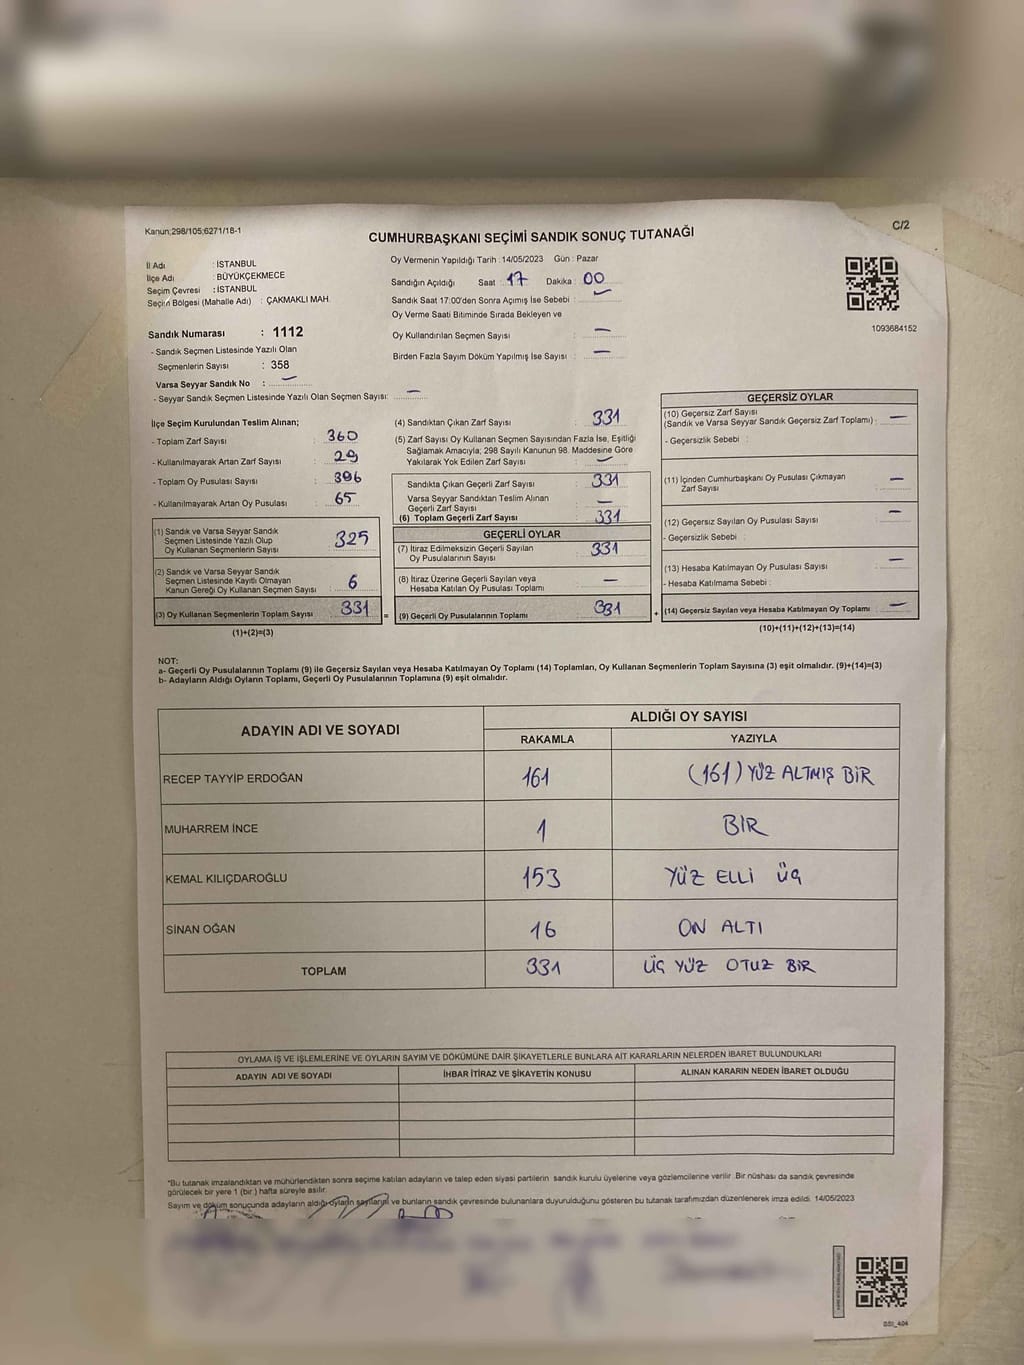 Kanun;298/105;6271/18-1
C/2
CUMHURBAŞKANI SEÇİMİ SANDIK SONUÇ TUTANAĞI
İl Adı : İSTANBUL
İlçe Adı : BÜYÜKÇEKMECE
Seçim Çevresi : İSTANBUL
Seçim Bölgesi (Mahalle Adı) : ÇAKMAKLI MAH.
Sandık Numarası : 1112
- Sandık Seçmen Listesinde Yazılı Olan
Seçmenlerin Sayısı : 358
Varsa Seyyar Sandık No : —
- Seyyar Sandık Seçmen Listesinde Yazılı Olan Seçmen Sayısı: —
Oy Vermenin Yapıldığı Tarih : 14/05/2023 Gün : Pazar
Sandığın Açıldığı Saat : 17 Dakika : 00
Sandık Saat 17:00'den Sonra Açımış İse Sebebi : —
Oy Verme Saati Bitiminde Sırada Bekleyen ve
Oy Kullandırılan Seçmen Sayısı : —
Birden Fazla Sayım Döküm Yapılmış İse Sayısı : —
1093684152
İlçe Seçim Kurulundan Teslim Alınan;
- Toplam Zarf Sayısı : 360
- Kullanılmayarak Artan Zarf Sayısı : 29
- Toplam Oy Pusulası Sayısı : 396
- Kullanılmayarak Artan Oy Pusulası : 65
(1) Sandık ve Varsa Seyyar Sandık
Seçmen Listesinde Yazılı Olup
Oy Kullanan Seçmenlerin Sayısı 325
(2) Sandık ve Varsa Seyyar Sandık
Seçmen Listesinde Kayıtlı Olmayan
Kanun Gereği Oy Kullanan Seçmen Sayısı 6
(3) Oy Kullanan Seçmenlerin Toplam Sayısı 331
(1)+(2)=(3)
(4) Sandıktan Çıkan Zarf Sayısı : 331
(5) Zarf Sayısı Oy Kullanan Seçmen Sayısından Fazla İse, Eşitliği
Sağlamak Amacıyla; 298 Sayılı Kanunun 98. Maddesine Göre
Yakılarak Yok Edilen Zarf Sayısı : —
Sandıkta Çıkan Geçerli Zarf Sayısı : 331
Varsa Seyyar Sandıktan Teslim Alınan
Geçerli Zarf Sayısı : —
(6) Toplam Geçerli Zarf Sayısı : 331
GEÇERLİ OYLAR
(7) İtiraz Edilmeksizin Geçerli Sayılan
Oy Pusulasının Sayısı : 331
(8) İtiraz Üzerine Geçerli Sayılan veya
Hesaba Katılan Oy Pusulası Toplamı —
= (9) Geçerli Oy Pusulalarının Toplamı 331 +
GEÇERSİZ OYLAR
(10) Geçersiz Zarf Sayısı
(Sandık ve Varsa Seyyar Sandık Geçersiz Zarf Toplamı) : —
- Geçersizlik Sebebi :
(11) İçinden Cumhurbaşkanı Oy Pusulası Çıkmayan
Zarf Sayısı —
(12) Geçersiz Sayılan Oy Pusulası Sayısı —
- Geçersizlik Sebebi :
(13) Hesaba Katılmayan Oy Pusulası Sayısı —
- Hesaba Katılmama Sebebi :
(14) Geçersiz Sayılan veya Hesaba Katılmayan Oy Toplamı : —
(10)+(11)+(12)+(13)=(14)
NOT:
a- Geçerli Oy Pusulalarının Toplamı (9) ile Geçersiz Sayılan veya Hesaba Katılmayan Oy Toplamı (14) Toplamları, Oy Kullanan Seçmenlerin Toplam Sayısına (3) eşit olmalıdır. (9)+(14)=(3)
b- Adayların Aldığı Oyların Toplamı, Geçerli Oy Pusulalarının Toplamına (9) eşit olmalıdır.
ADAYIN ADI VE SOYADI
ALDIĞI OY SAYISI
RAKAMLA YAZIYLA
RECEP TAYYİP ERDOĞAN 161 (161) YÜZ ALTMIŞ BİR
MUHARREM İNCE 1 BİR
KEMAL KILIÇDAROĞLU 153 YÜZ ELLİ ÜÇ
SİNAN OĞAN 16 ON ALTI
TOPLAM 331 ÜÇ YÜZ OTUZ BİR
OYLAMA İŞ VE İŞLEMLERİNE VE OYLARIN SAYIM VE DÖKÜMÜNE DAİR ŞİKAYETLERLE BUNLARA AİT KARARLARIN NELERDEN İBARET BULUNDUKLARI
ADAYIN ADI VE SOYADI İHBAR İTİRAZ VE ŞİKAYETİN KONUSU ALINAN KARARIN NEDEN İBARET OLDUĞU
*Bu tutanak imzalandıktan ve mühürlendikten sonra seçime katılan adayların ve talep eden siyasi partilerin sandık kurulu üyelerine veya gözlemcilerine verilir. Bir nüshası da sandık çevresinde
görülecek bir yere 1 (bir) hafta süreyle asılır.
Sayım ve döküm sonucunda adayların aldığı oyların sayılarını ve bunların sandık çevresinde bulunanlara duyurulduğunu gösteren bu tutanak tarafımızdan düzenlenerek imza edildi. 14/05/2023